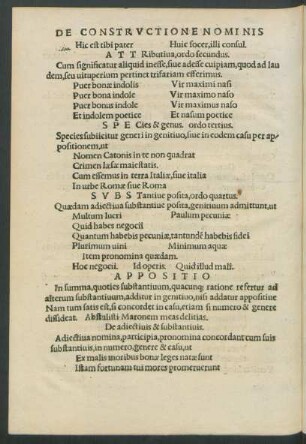 DE CONSTRVCTIONE NOMINIS
Hic est tibi pater Huic socer, illi consul.
ATTRibutiua, ordo secundus.
Cum significatur aliquid inesse, siue adesse cuipiam, quod ad lau
dem, seu uituperium pertinet trifariam efferimus.
Puer bonæ indolis Vir maximi nasi
Puer bona indole Vir maximo naso
Puer bonus indole Vir maximus naso
Et indolem poetice Et nasum poetice
SPECies & genus. ordo tertius.
Species subiicitur generi in genitiuo, siue in eodem casu per ap-
positionem, ut
Nomen Catonis in te non quadrat
Crimen læsæ maiestatis.
Cum essemus in terra Italiæ, siue italia
In urbe Romæ siue Roma
SVBSTantiue posita, ordo quartus.
Quædam adiectiua substantiue posita, genitiuum admittunt, ut
Multum lucri Paulum pecuniæ
Quid habes negocii
Quantum habebis pecuniæ, tantundē habebis fidei
Plurimum uini Minimum aquæ
Item pronomina quædam.
Hoc negocii. Id operis. Quid istud mali.
APPOSITIO
In summa, quoties substantiuum, quacunq; ratione refertur ad
alterum substantiuum, additur in genitiuo, nisi addatur appositiue
Nam tum satis est, si concordet in casu, etiam si numero & genere
dissideat. Abstulisti Maronem meas delitias.
De adiectiuis & substantiuis.
Adiectiua nomina, participia, pronomina concordant cum suis
substantiuis, in numero, genere & casu, ut
Ex malis moribus bonæ leges natæ sunt
Istam fortunam tui mores promeruerunt